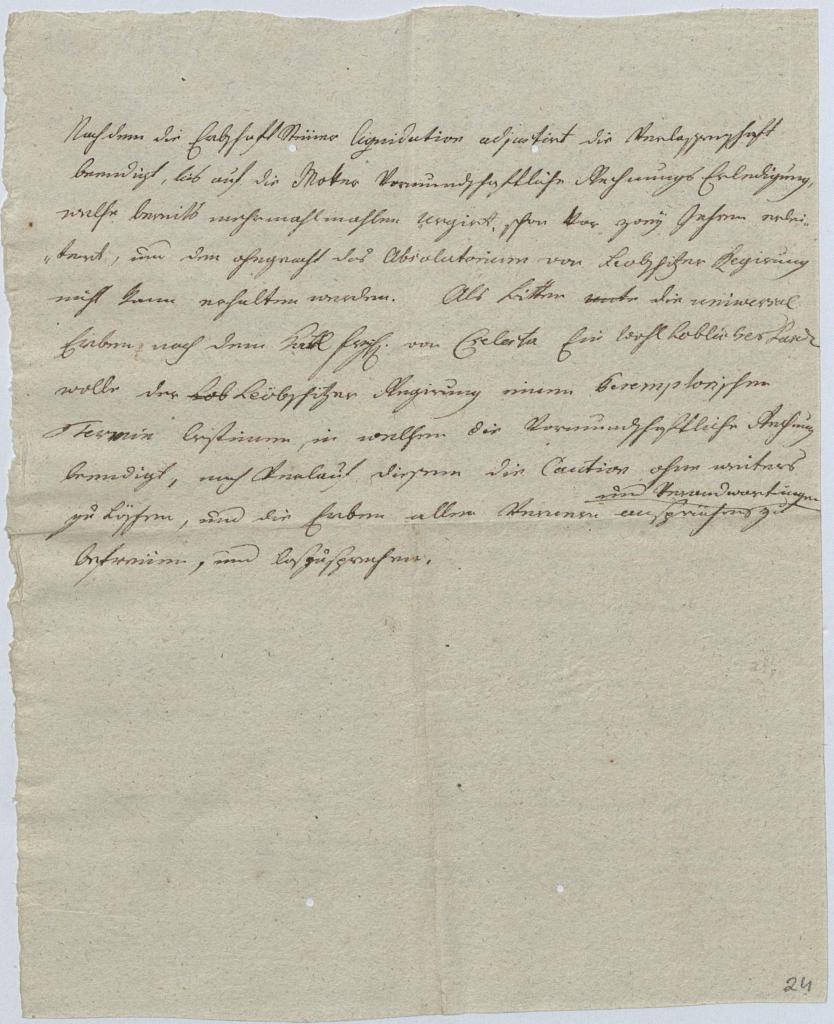 Nachdem die Erbschaft Steüer liquidation adjustirt die Verlassenschaft
beendigt, bis auf die Moker Vormundschaftliche Rechnungs Erledigung,
welche bereits mehrmahlmahlen urgirt, schon vor zweÿ Jahren erlei-
-tert, und dem ohngeacht das Absolutorium von Leobschizer Regirung
nicht kann erhalten werden. Als bitten die universal
Erben nach dem Frh: von Ein Wohl Lobliches Land
wolle der Leobschizer Regirung einen Peremptorischen
Termin bestimen, in welchen die Vormundschaftliche Rechnung
beendigt, nach Verlauf diesem die Caution ohne weiters
und Verandwortungen
zu löschen, und die Erben allen ansprüchens zu
befreüen, und loszusprechen.
24